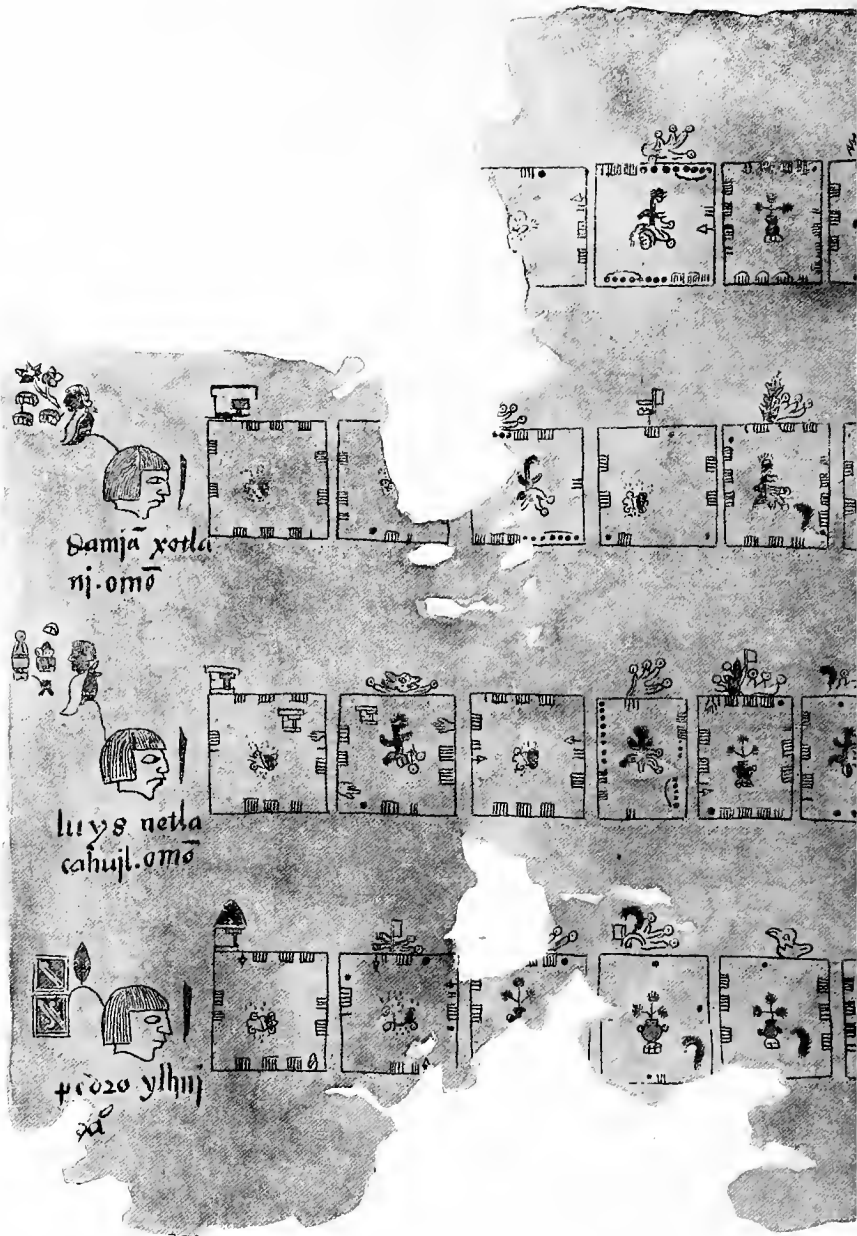 Damjā xotla
nj. omō
luys netla
cahujl. omō
pedro ylhuj